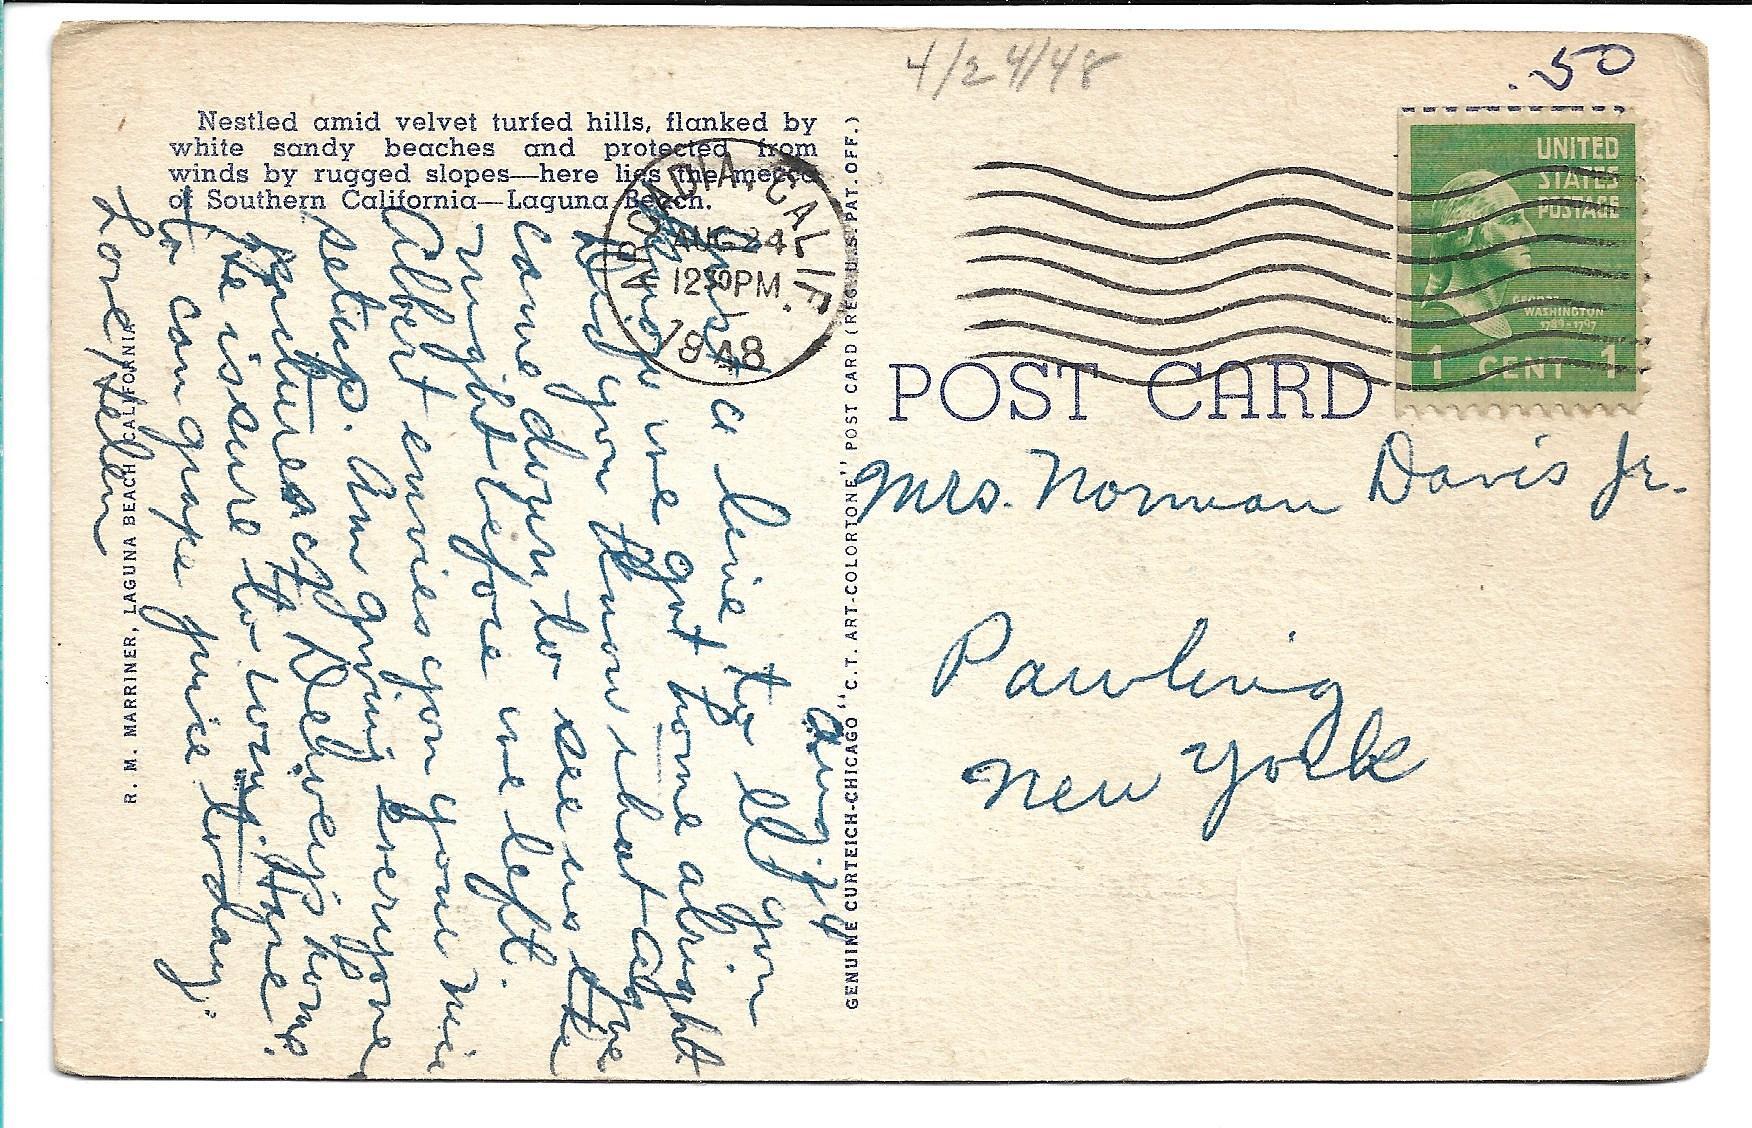 4/24/48
.50
Nestled amid velvet turfed hills, flanked by
white sandy beaches and protected from
winds by rugged slopes—here lies the mecca
of Southern California—Laguna Beach.
ARCADIA, CALIF.
AUG 24
12 30 PM
1948
UNITED
STATES
POSTAGE
WASHINGTON
1789-1797
1 CENT 1
POST CARD
Mrs. Norman Davis Jr.
Pawling
New York
Aug 24
Just a line to tell you
we got home alright
Did you know that Aggie
came down to see us the
night before we left.
Albert envies you your
setup. Am giving everyone
pictures of Delweip's home
He is sure to want. Have
to can grape juice today.
Love, Helen
GENUINE CURTEICH-CHICAGO "C.T. ART-COLORTONE" POST CARD (REG. U.S. PAT. OFF.)
R. M. MARRINER, LAGUNA BEACH, CALIFORNIA